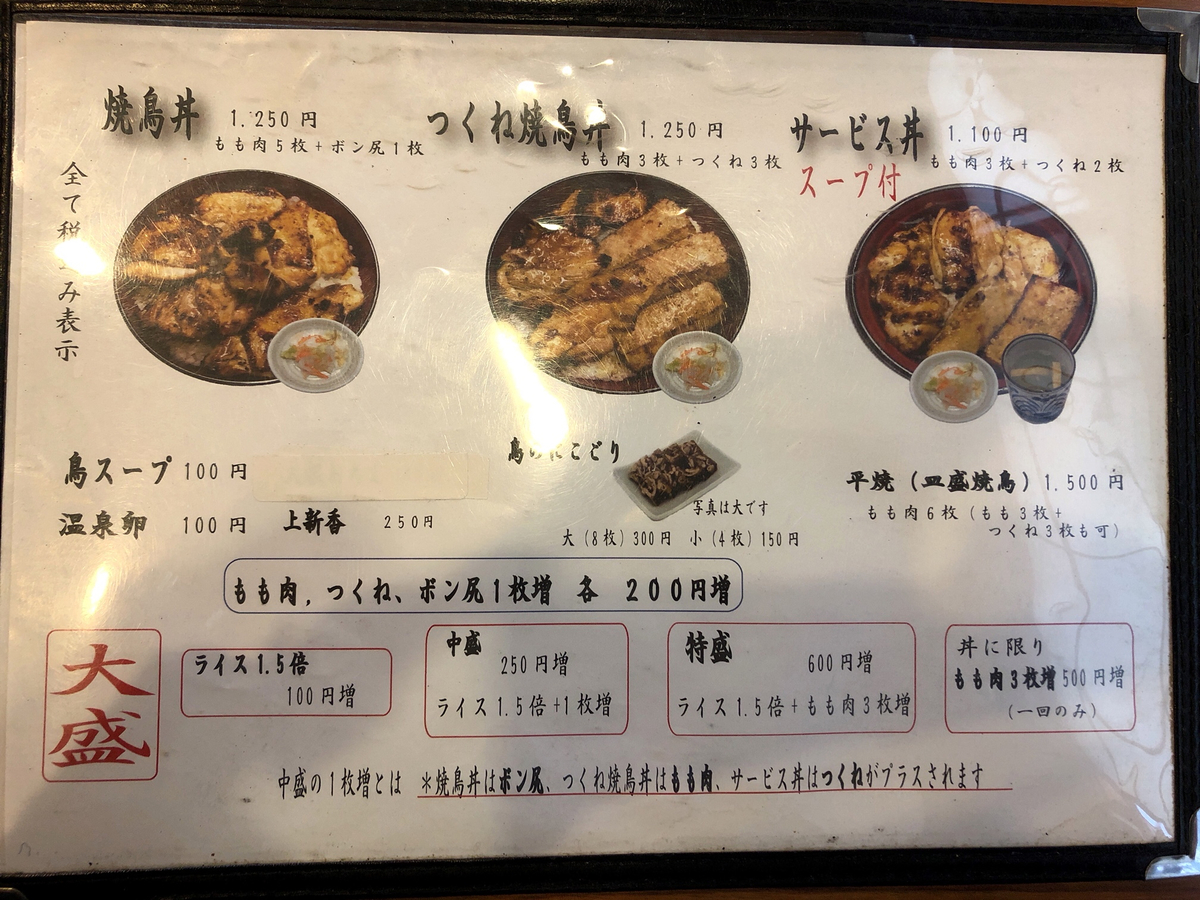 焼鳥丼 1.250円
もも肉5枚+ボン尻1枚
つくね焼鳥丼 1.250円
もも肉3枚+つくね3枚
サービス丼 1.100円
もも肉3枚+つくね2枚
スープ付
全て税込み表示
鳥スープ 100円
温泉卵 100円
上新香 250円
鳥のにこごり
写真は大です
大(8枚)300円 小(4枚)150円
平焼(皿盛焼鳥)1.500円
もも肉6枚(もも3枚+
つくね3枚も可)
もも肉,つくね、ボン尻1枚増 各 200円増
大盛
ライス1.5倍
100円増
中盛
250円増
ライス1.5倍+1枚増
特盛
600円増
ライス1.5倍+もも肉3枚増
丼に限り
もも肉3枚増500円増
(一回のみ)
中盛の1枚増とは *焼鳥丼はボン尻、つくね焼鳥丼はもも肉、サービス丼はつくねがプラスされます